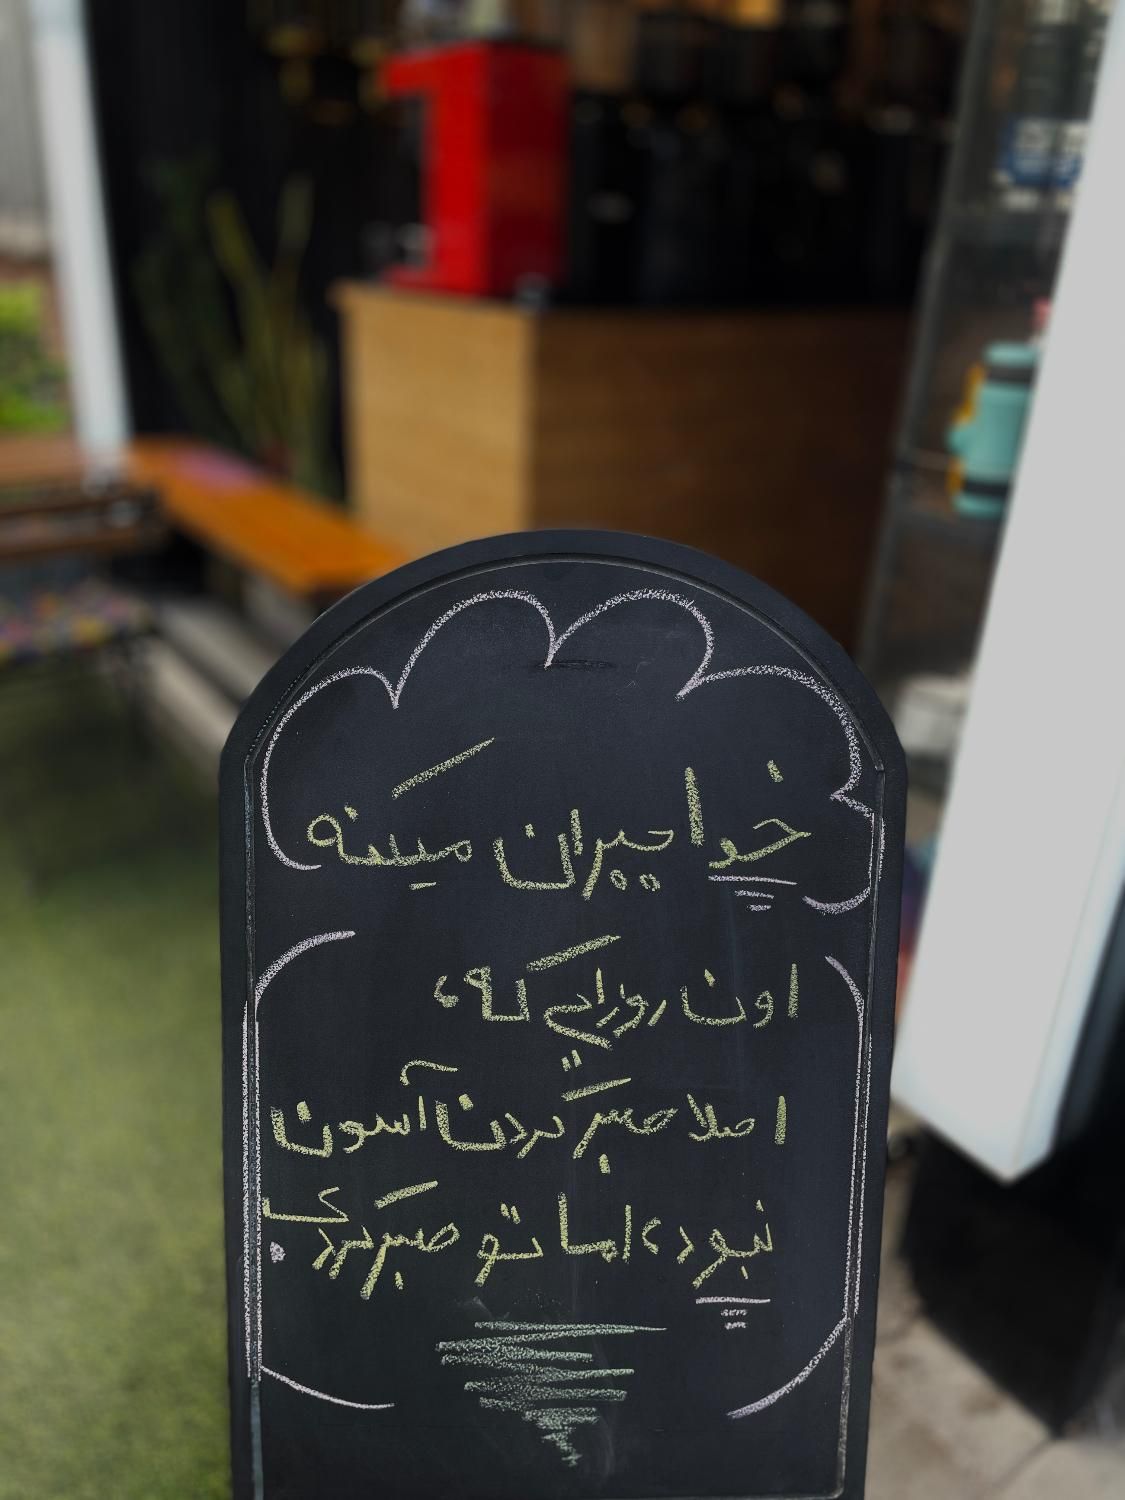 خدا جبران میکنه
اون روزایی که،
اصلا صبر کردن آسون
نبود، اما تو صبر کردی.